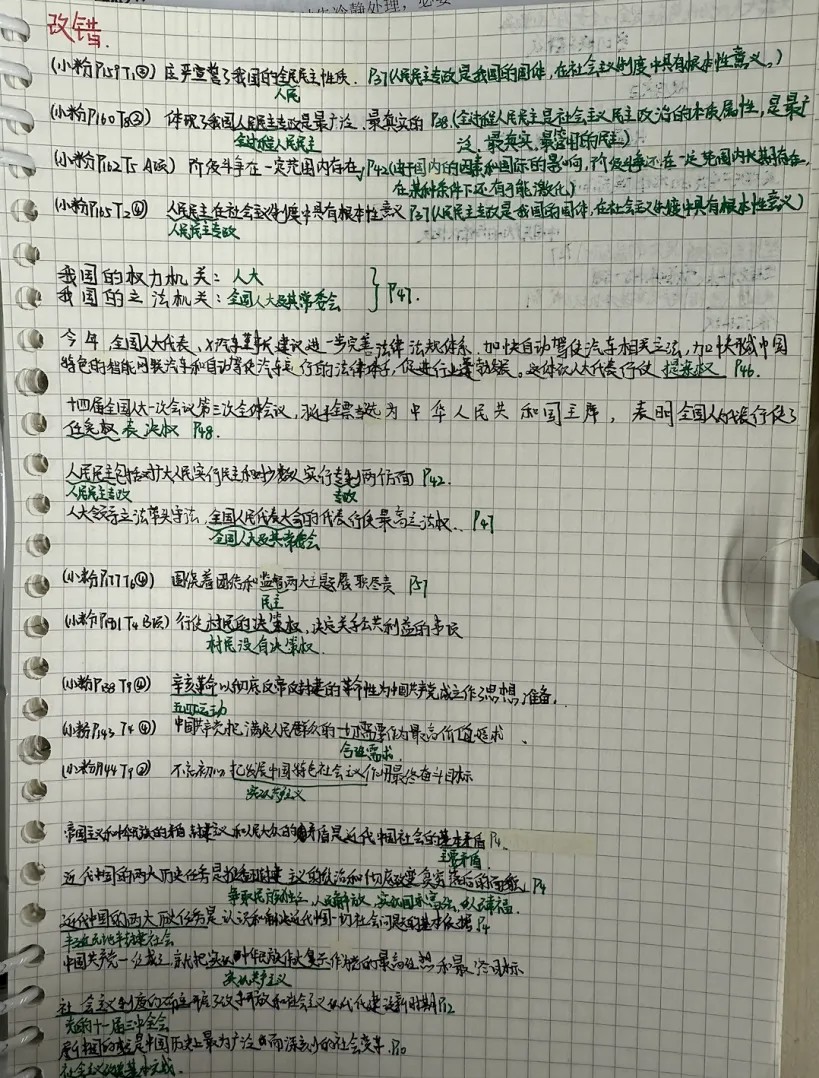 改错.
(小粉P159T1④) 庄严宣誓了我国的全民民主性质. P37(人民民主专政是我国的国体,在社会主义制度中具有根本性意义。)
人民
(小粉P160T8③) 体现了我国人民民主专政是最广泛、最真实的 P38.(全过程人民民主是社会主义民主政治的本质属性,是最广
全过程人民民主 泛、最真实、最管用的民主)
(小粉P162T5 A项) 阶级斗争在一定范围内存在, P42(由于国内的因素和国际的影响,阶级斗争还在一定范围内长期存在,
在某种条件下还有可能激化)
(小粉P165T2④) 人民民主在社会主义制度中具有根本性意义 P37(人民民主专政是我国的国体,在社会主义制度中具有根本性意义)
人民民主专政
我国的权力机关: 人大
我国的立法机关: 全国人大及其常委会 } P47.
今年,全国人大代表、X汽车董事长建议进一步完善法律法规体系,加快自动驾驶汽车相关立法,加快形成中国
特色的智能网联汽车和自动驾驶汽车运行的法律体系,促进行业蓬勃发展。这体现人大代表行使 提案权 P46.
十四届全国人大一次会议第三次全体会议,习近平全票当选为中华人民共和国主席,表明全国人大代表行使了
任免权 表决权 P48.
人民民主包括对广大人民实行民主和对少数人实行专制两个方面 P42.
人民民主专政 专政
人大领导立法带头守法,全国人民代表大会的代表行使最高立法权. P47
全国人大及其常委会
(小粉P177T6④) 围绕着团结和监督两大主题履职尽责 P57
民主
(小粉P181T4 B项) 行使村民的决策权,决定关乎公共利益的事项
村民没有决策权.
(小粉P138T9④) 辛亥革命以彻底反帝反封建的革命性为中国共产党成立作了思想准备.
五四运动
(小粉P143 T4④) 中国共产党把满足人民群众的一切需要作为最高价值追求、
合理需求.
(小粉P144T9②) 不忘初心 把发展中国特色社会主义作为最终奋斗目标
实现共产主义
帝国主义和中华民族的矛盾,封建主义和人民大众的矛盾是近代中国社会的基本矛盾 P4.
主要矛盾
近代中国的两大历史任务是推翻封建主义的统治和彻底改变贫穷落后的面貌. P4
争取民族独立、人民解放,实现国家富强、人民幸福.
近代中国的两大历史任务是认识和解决近代中国一切社会问题的基本依据 P4
半殖民地半封建社会
中国共产党一经成立,就把实现中华民族伟大复兴作为党的最高理想和最终目标
实现共产主义
社会主义制度的确立开启了改革开放和社会主义现代化建设新时期 P12
党的十一届三中全会
新中国的成立是中国历史上最为广泛而深刻的社会变革. P10
社会主义改造基本完成.